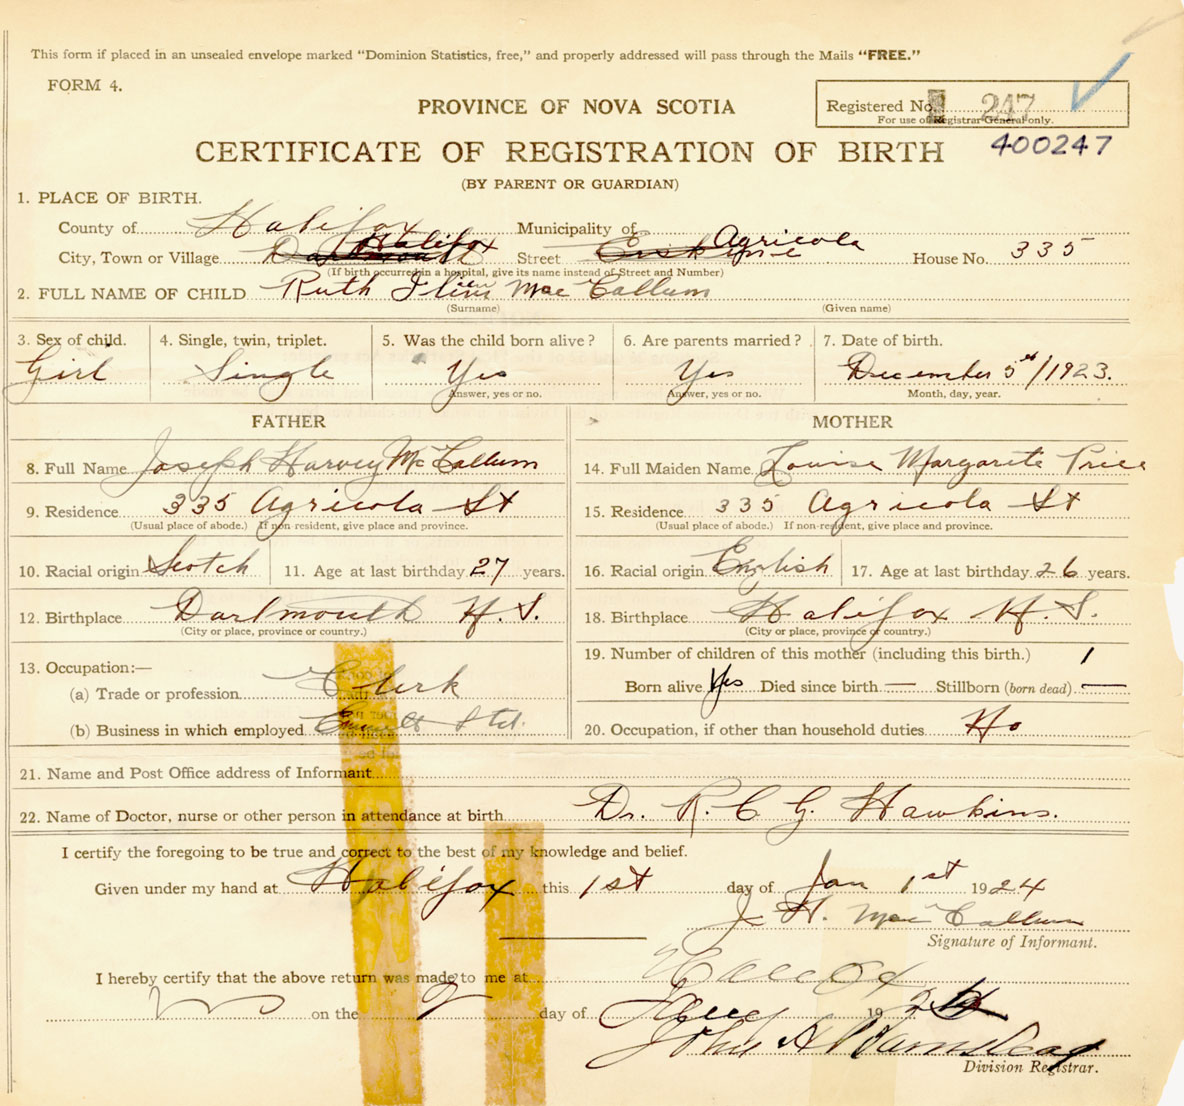 This form if placed in an unsealed envelope marked "Dominion Statistics, free," and properly addressed will pass through the Mails "FREE."
FORM 4.
PROVINCE OF NOVA SCOTIA
Registered No. 247
For use of Registrar General only.
CERTIFICATE OF REGISTRATION OF BIRTH
400247
(BY PARENT OR GUARDIAN)
1. PLACE OF BIRTH.
County of Halifax Municipality of
City, Town or Village Dartmouth Halifax Street Erskine Agricola House No. 335
(If birth occurred in a hospital, give its name instead of Street and Number)
2. FULL NAME OF CHILD Ruth Mac Callum
(Surname) (Given name)
3. Sex of child. 4. Single, twin, triplet. 5. Was the child born alive? 6. Are parents married? 7. Date of birth.
Girl Single Yes Yes December 5th/1923.
Answer, yes or no. Answer, yes or no. Month, day, year.
FATHER MOTHER
8. Full Name Joseph Harvey McCallum 14. Full Maiden Name Louise Margarete Price
9. Residence 335 Agricola St 15. Residence 335 Agricola St
(Usual place of abode.) If non resident, give place and province. (Usual place of abode.) If non-resident, give place and province.
10. Racial origin Scotch 11. Age at last birthday 27 years. 16. Racial origin English 17. Age at last birthday 26 years.
12. Birthplace Dartmouth N.S. 18. Birthplace Halifax N.S.
(City or place, province or country.) (City or place, province or country.)
13. Occupation:— 19. Number of children of this mother (including this birth.) 1
(a) Trade or profession Clerk Born alive Yes Died since birth — Stillborn (born dead) —
(b) Business in which employed 20. Occupation, if other than household duties No
21. Name and Post Office address of Informant
22. Name of Doctor, nurse or other person in attendance at birth Dr. R. C. G. Hawkins.
I certify the foregoing to be true and correct to the best of my knowledge and belief.
Given under my hand at Halifax this 1st day of Jan 1st 1924
J. H. Mac Callum
Signature of Informant.
I hereby certify that the above return was made to me at
on the 2 day of Jany 1924
John A
Division Registrar.